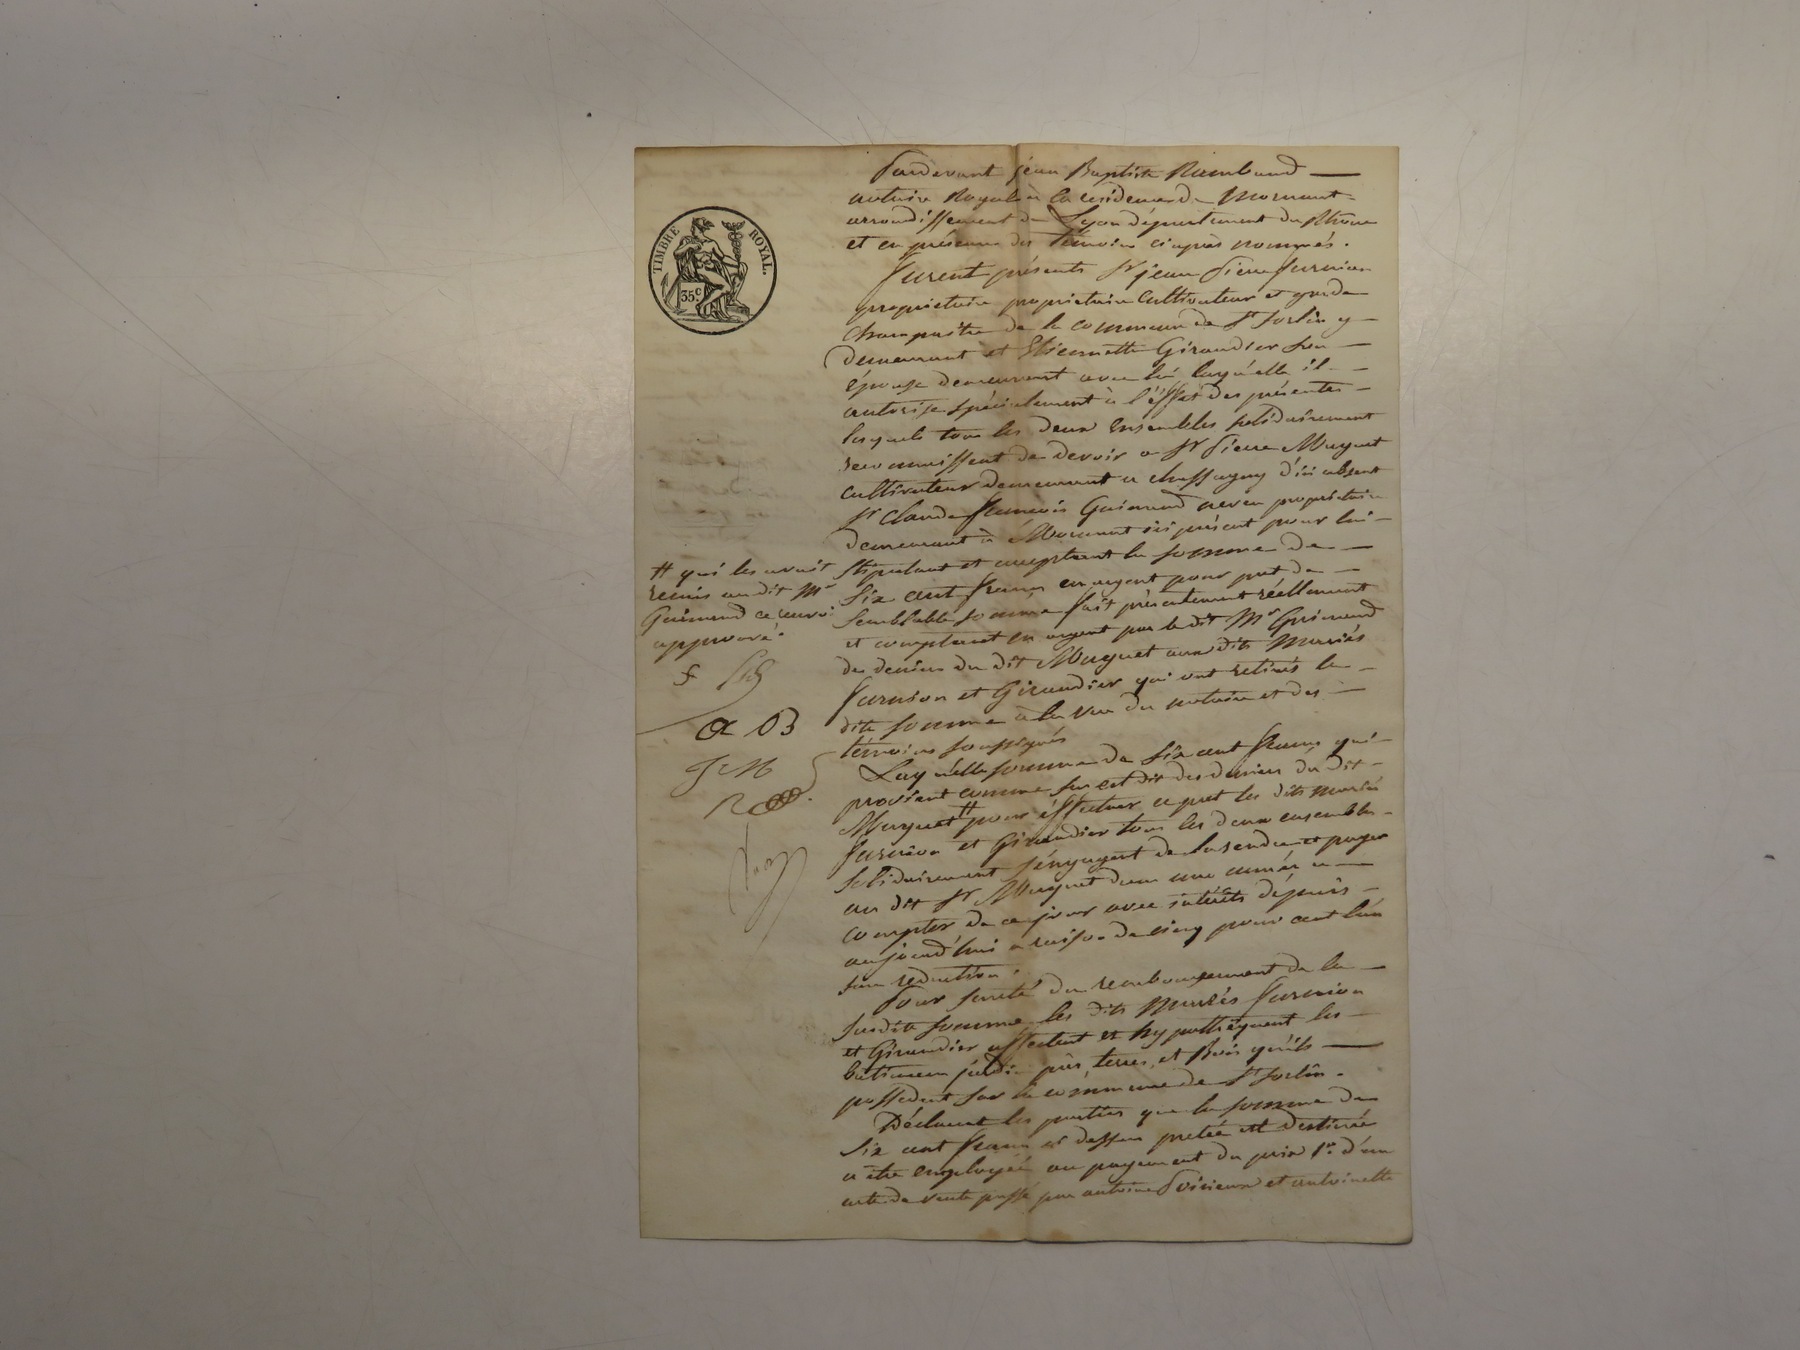 TIMBRE ROYAL.
35 c
Pardevant jean Baptiste Rambaud
notaire Royal à la residence de Mornant
arrondissement de Lyon département du Rhône
et en présence des témoins ci après nommés.
Furent présents Sr jean Pierre
propriétaire propriétaire cultivateur et garde
champaitre de la commune de St Sorlin y
demeurant et Etiennette Giraudier son
épouse demeurant avec lui laquelle il
autorise spécialement à l'éffet des présentes
lesquels tous les deux Ensembles solidairement
reconnaissent de devoir a Sr Pierre Muguet
cultivateur demeurant a chassagny d'ici absent
Sr Claude François Guimand propriétaire
demeurant à Mornant ici présent pour lui
stipulant et acceptant la somme de
six cent francs en argent pour pret de
semblable somme fait présentement réellement
et comptant en argent par le dit Mr Guimand
des deniers du dit Muguet aux dits Mariés
et Giraudier qui ont retirés la
dite somme à la vue du notaire et des
témoins soussignés
Laquelle somme de six cent francs qui
provient comme sus est dit des deniers du dit
Muguet # pour éffectuer ce pret les dits mariés
et Giraudier tous les deux ensemble
solidairement s'engagent de la rendre et payer
au dit Sr Muguet dans une année a
compter de ce jour avec intérêts dépuis
aujourd'hui a raison de cinq pour cent l'an
sans reduction.
Pour sureté du remboursement de la
susdite somme les dits Mariés
et Giraudier affectent et hypothéquent les
bâtimens jardin prés, terres, et Bois qu'ils
possedent sur la commune de St Sorlin.
Déclarent les parties que la somme de
six cent francs ci dessus pretée est destinée
a être employée au payement du prix d'un
acte de vente passé par antoine et antoinette
# qui les avait
remis au dit Mr
Guimand ce renvoi
approuvé.
f
a B